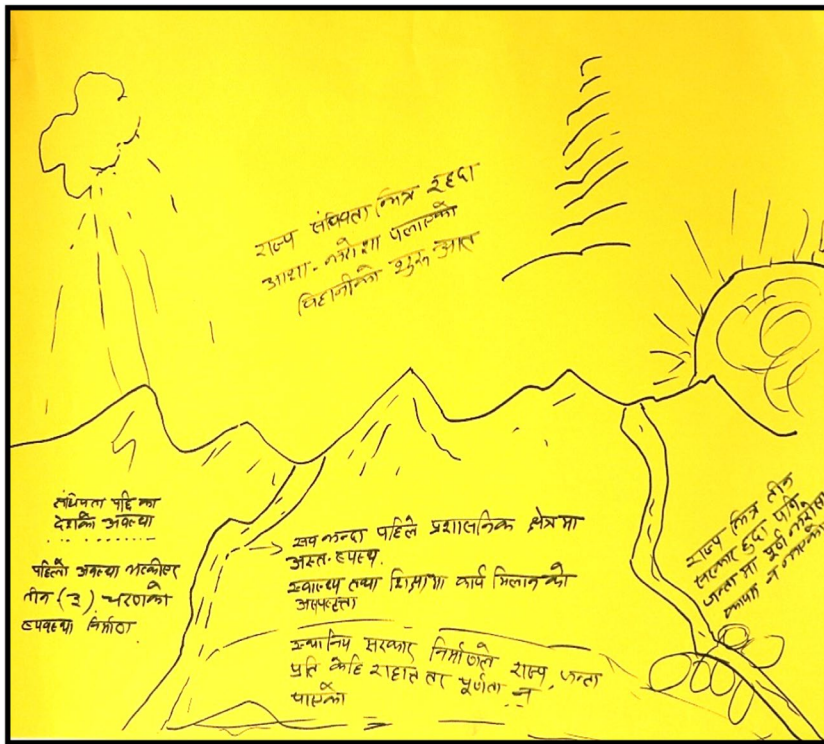 राज्य संघियता भित्र रहदा
आशा-भरोशा पलाएको
बिहानीको शुरू आत
संघियता पछि का
देशको अवस्था
पहिलो अवस्था भत्कीएर
तीन (३) चरणको
व्यवस्था निर्माण
सब भन्दा पहिले प्रशासनिक क्षेत्रमा
अस्त-व्यस्थ.
स्वास्थ्य तथा शिक्षामा कार्य मिलानको
अस्पष्टता
स्थानिय सरकार निर्माणले राज्य, जन्ता
प्रति केहि राहात तर पूर्णता न
पाएको
राज्य भित्र तीन
सरकार हुदा पनि
जन्ता मा पूर्ण भरोसा
कायम न भएको